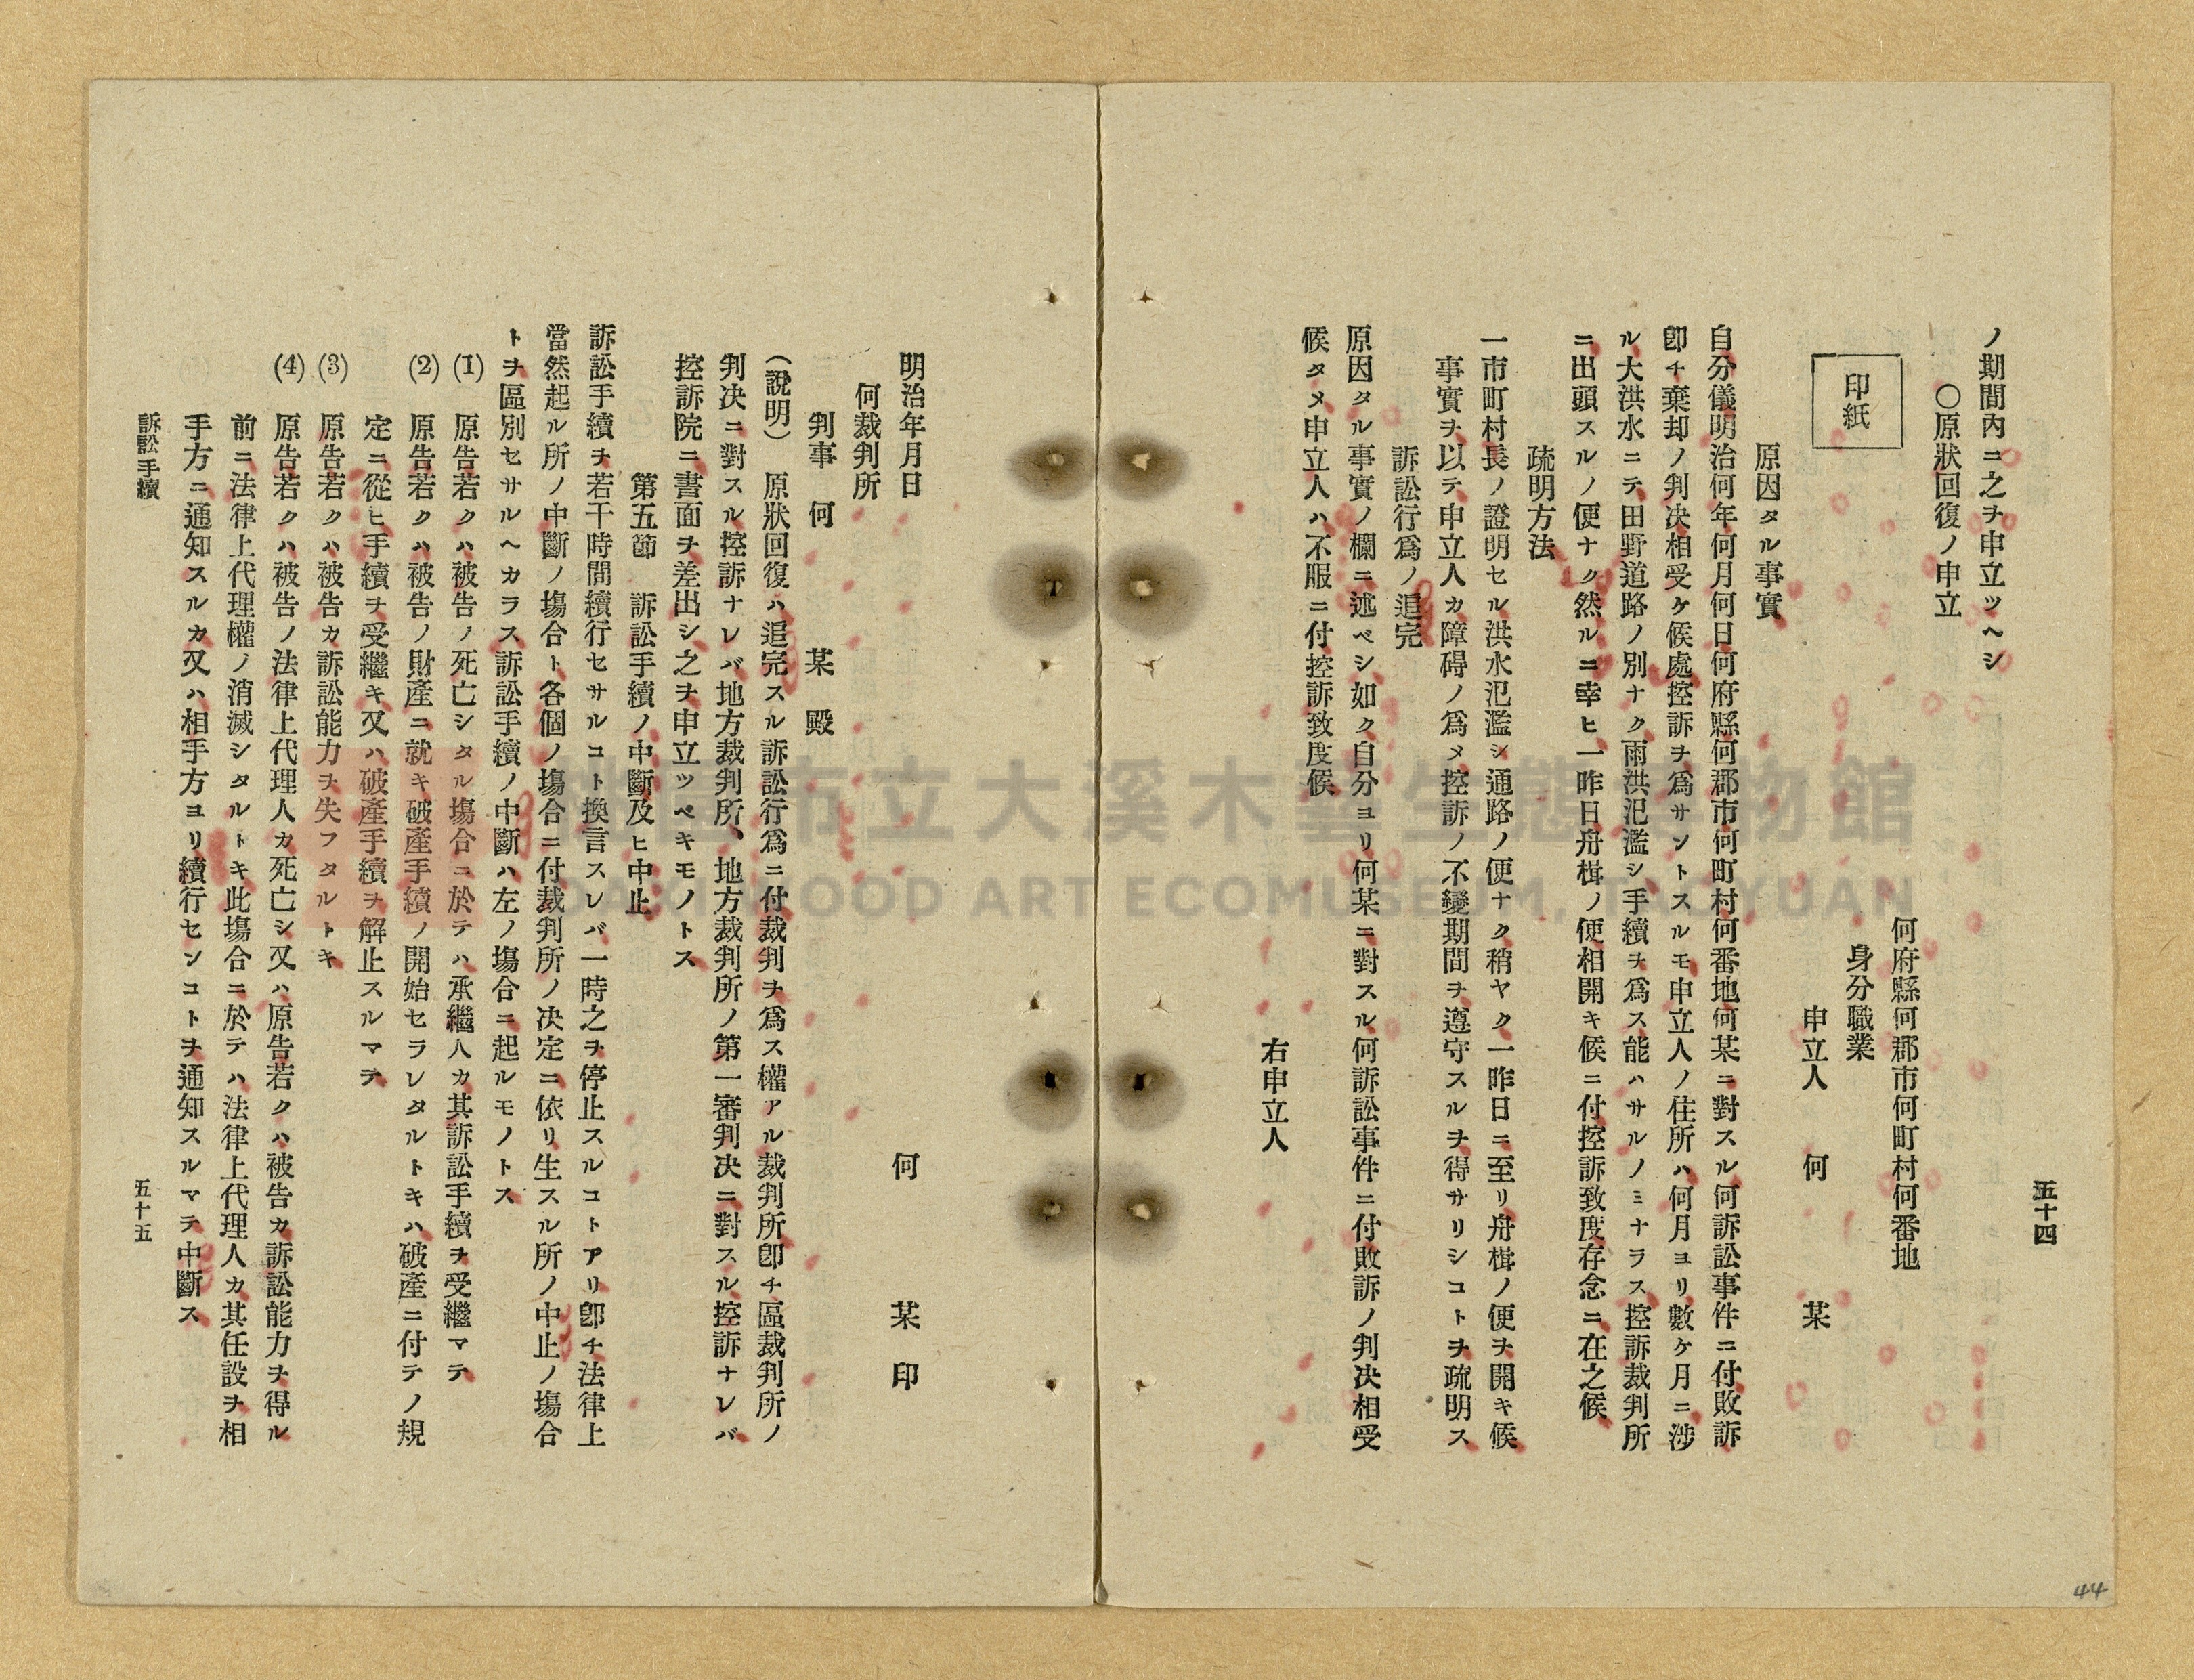 五十四
ノ期間内ニ之ヲ申立ツヘシ
〇原狀回復ノ申立
何府縣何郡市何町村何番地
身分職業
申立人 何 某
印紙
原因タル事實
自分儀明治何年何月何日何府縣何郡市何町村何番地何某ニ對スル何訴訟事件ニ付敗訴
卽チ棄却ノ判决相受ケ候處控訴ヲ爲サントスルモ申立人ノ住所ハ何月ヨリ數ケ月ニ涉
ル大洪水ニテ田野道路ノ別ナク雨洪氾濫シ手續ヲ爲ス能ハサルノミナラス控訴裁判所
ニ出頭スルノ便ナク然ルニ幸ヒ一昨日舟楫ノ便相開キ候ニ付控訴致度存念ニ在之候
疏明方法
一市町村長ノ證明セル洪水氾濫シ通路ノ便ナク稍ヤク一昨日ニ至リ舟楫ノ便ヲ開キ候
事實ヲ以テ申立人カ障碍ノ爲メ控訴ノ不變期間ヲ遵守スルヲ得サリシコトヲ疏明ス
訴訟行爲ノ追完
原因タル事實ノ欄ニ述ベシ如ク自分ヨリ何某ニ對スル何訴訟事件ニ付敗訴ノ判决相受
候タメ申立人ハ不服ニ付控訴致度候
右申立人
明治年月日
何 某 印
何裁判所
判事 何 某 殿
(說明) 原狀回復ハ追完スル訴訟行爲ニ付裁判ヲ爲ス權アル裁判所卽チ區裁判所ノ
判决ニ對スル控訴ナレバ地方裁判所、地方裁判所ノ第一審判决ニ對スル控訴ナレバ
控訴院ニ書面ヲ差出シ之ヲ申立ツベキモノトス
第五節 訴訟手續ノ中斷及ヒ中止
訴訟手續ヲ若干時間續行セサルコト換言スレバ一時之ヲ停止スルコトアリ卽チ法律上
當然起ル所ノ中斷ノ塲合ト各個ノ塲合ニ付裁判所ノ决定ニ依リ生スル所ノ中止ノ塲合
トヲ區別セサルヘカラス訴訟手續ノ中斷ハ左ノ塲合ニ起ルモノトス
(1) 原告若クハ被告ノ死亡シタル塲合ニ於テハ承繼人カ其訴訟手續ヲ受繼マテ
(2) 原告若クハ被告ノ財產ニ就キ破產手續ノ開始セラレタルトキハ破產ニ付テノ規
定ニ從ヒ手續ヲ受繼キ又ハ破產手續ヲ解止スルマテ
(3) 原告若クハ被告カ訴訟能力ヲ失フタルトキ
(4) 原告若クハ被告ノ法律上代理人カ死亡シ又ハ原告若クハ被告カ訴訟能力ヲ得ル
前ニ法律上代理權ノ消滅シタルトキ此塲合ニ於テハ法律上代理人カ其任設ヲ相
手方ニ通知スルカ又ハ相手方ヨリ續行センコトヲ通知スルマテ中斷ス
訴訟手續
五十五
44
市立大溪木藝生態博物館
DAXI WOOD ART ECOMUSEUM, TAOYUAN